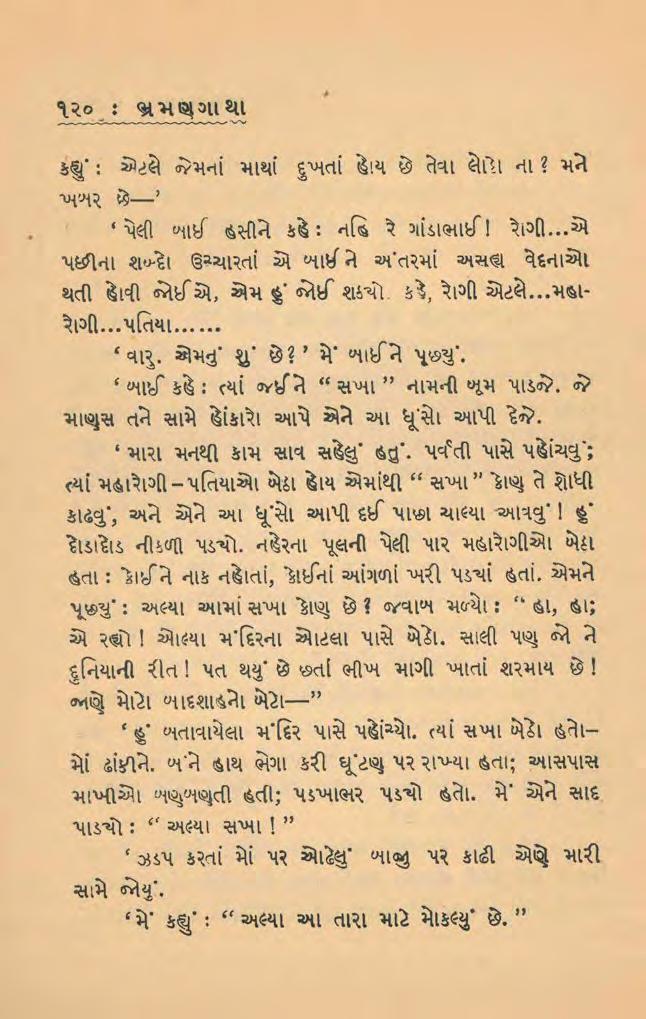 ૧૨૦ : ભ્રમણગાથા
કહ્યું : એટલે જેમનાં માથાં દુખતાં હોય છે તેવા લોકો ના ? મને
ખબર છે—’
‘ પેલી બાઈ હસીને કહે : નહિ રે ગાંડાભાઈ ! રોગી...એ
પછીના શબ્દો ઉચ્ચારતાં એ બાઈને અંતરમાં અસહ્ય વેદનાઓ
થતી હોવી જોઈએ, એમ હું જોઈ શક્યો. કહે, રોગી એટલે...મહા-
રોગી...પતિયા......
‘ વારુ. એમનું શું છે ? ’ મેં બાઈને પૂછ્યું.
‘ બાઈ કહે : ત્યાં જઈને “ સખા ” નામની બૂમ પાડજે. જે
માણસ તને સામે હોંકારો આપે એને આ ધૂંસો આપી દેજે.
‘ મારા મનથી કામ સાવ સહેલું હતું. પર્વતી પાસે પહોંચવું;
ત્યાં મહારોગી – પતિયાઓ બેઠા હોય એમાંથી “ સખા ” કોણ તે શોધી
કાઢવું, અને એને આ ધૂંસો આપી દઈ પાછા ચાલ્યા આવવું ! હું
દોડાદોડ નીકળી પડ્યો. નહેરના પૂલની પેલી પાર મહારોગીઓ બેઠા
હતા : કોઈને નાક નહોતાં, કોઈનાં આંગળાં ખરી પડ્યાં હતાં. એમને
પૂછ્યું : અલ્યા આમાં સખા કોણ છે ? જવાબ મળ્યો : “ હા, હા;
એ રહ્યો ! ઓલ્યા મંદિરના ઓટલા પાસે બેઠો. સાલી પણ જો ને
દુનિયાની રીત ! પત થયું છે છતાં ભીખ માગી ખાતાં શરમાય છે !
જાણે મોટો બાદશાહનો બેટો—”
‘ હું બતાવાયેલા મંદિર પાસે પહોંચ્યો. ત્યાં સખા બેઠો હતો–
મોં ઢાંકીને. બંને હાથ ભેગા કરી ઘૂંટણ પર રાખ્યા હતા; આસપાસ
માખીઓ બણબણતી હતી; પડખાભર પડ્યો હતો. મેં એને સાદ
પાડ્યો : “ અલ્યા સખા ! ”
‘ ઝડપ કરતાં મોં પર ઓઢેલું બાજુ પર કાઢી એણે મારી
સામે જોયું.
‘ મેં કહ્યું : “ અલ્યા આ તારા માટે મોકલ્યું છે. ”